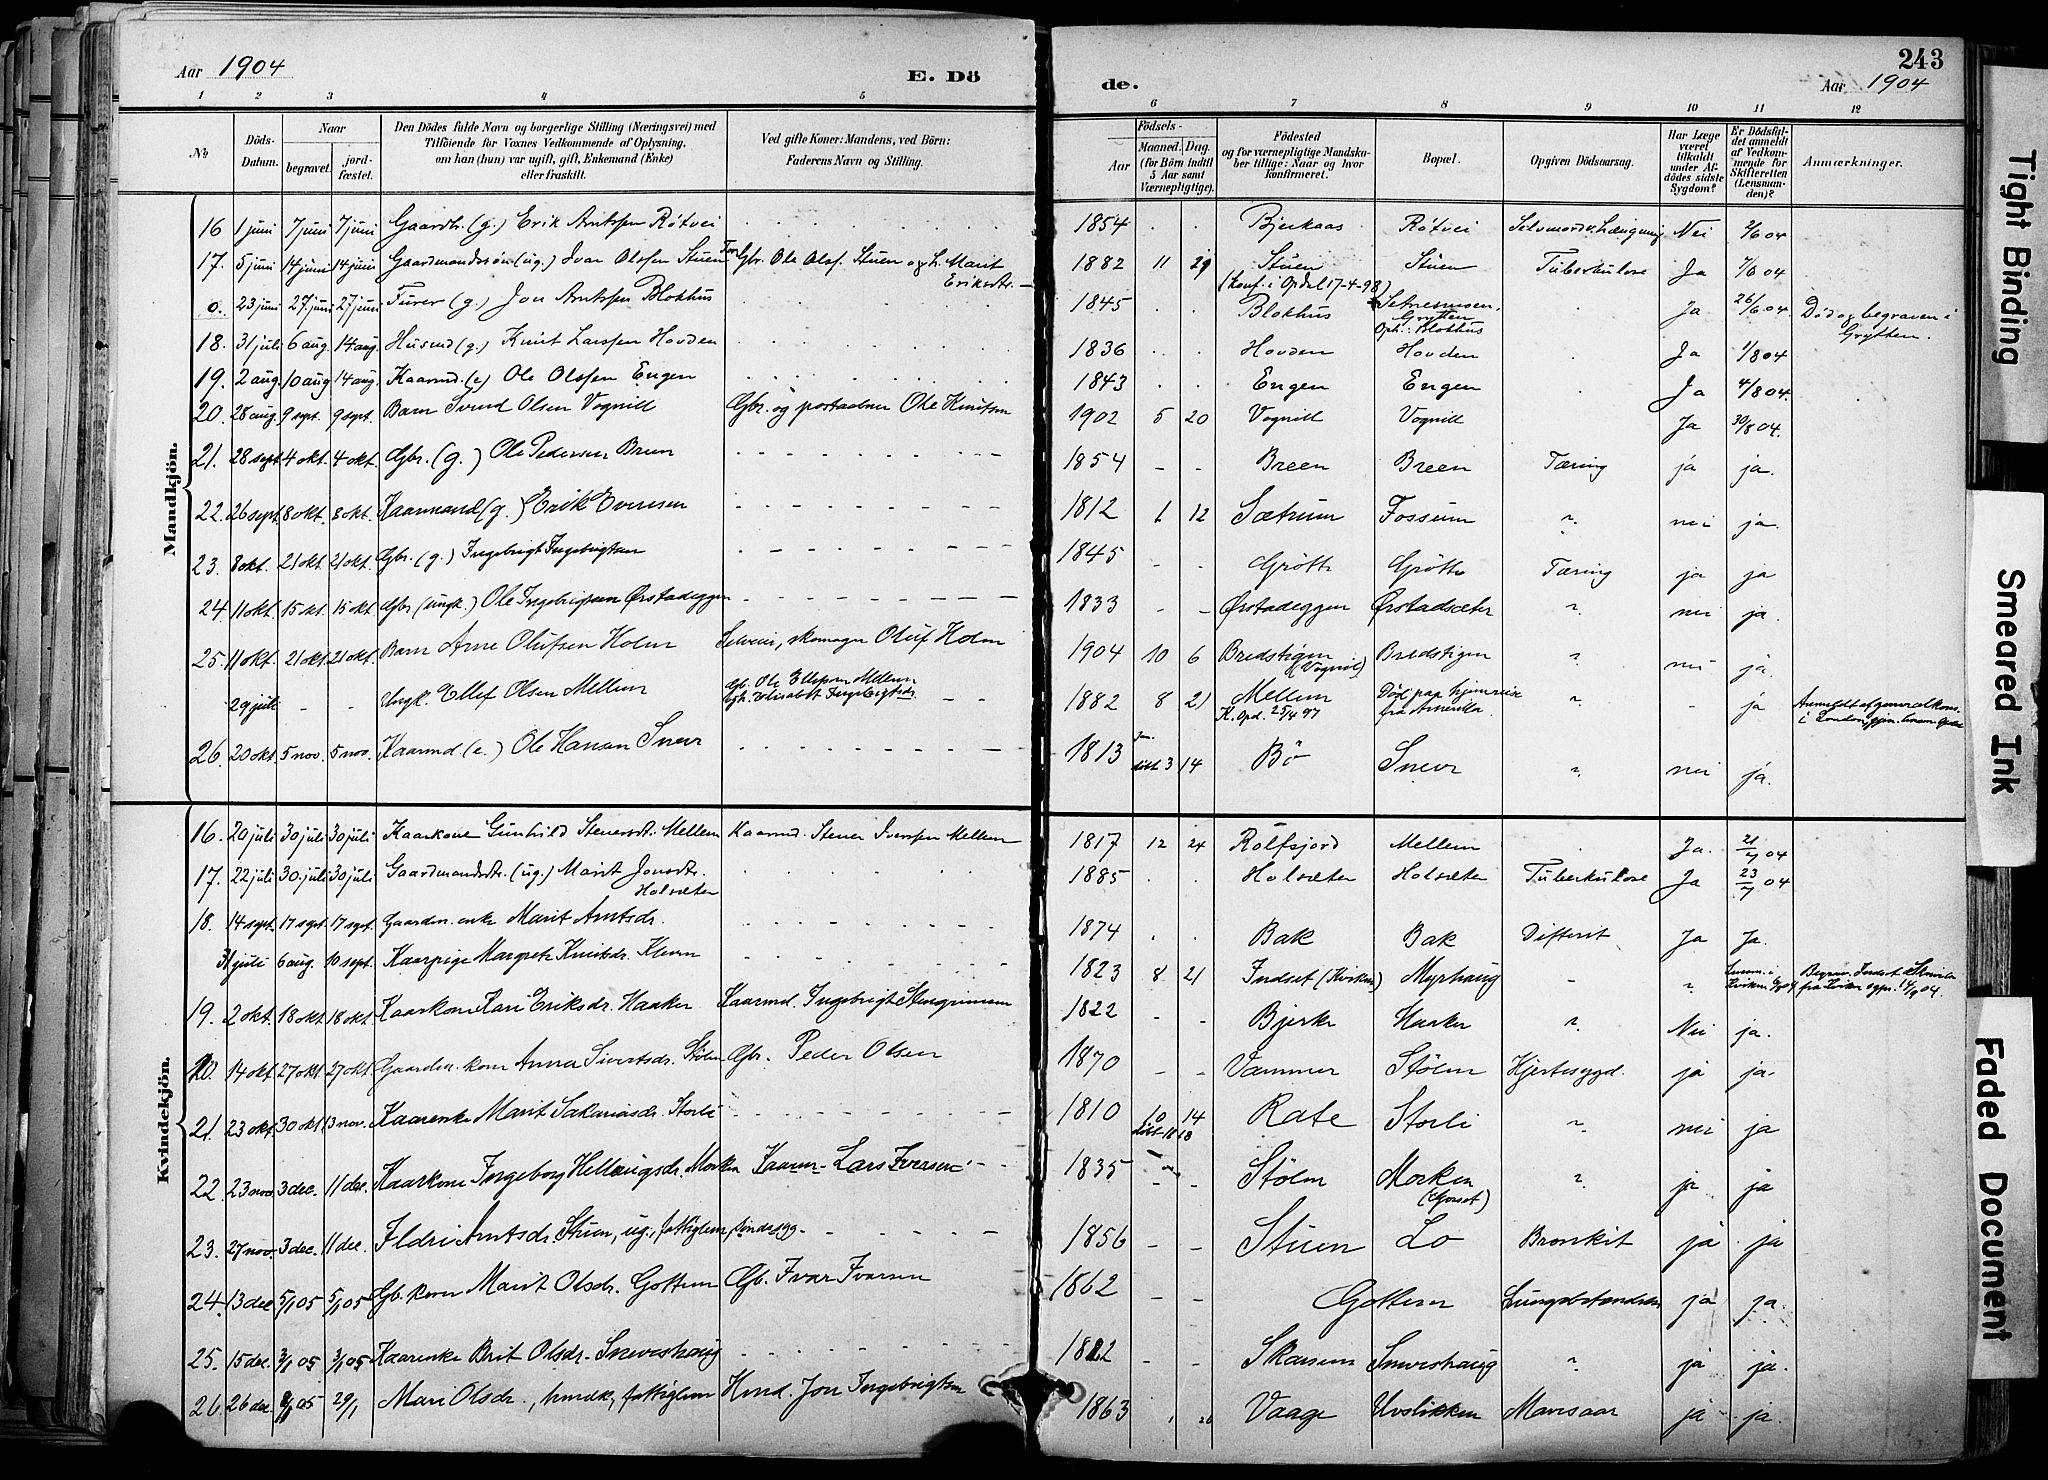 Aar 1904
E. Dö
de.
243
Aar 1904
1 2 3 4 5 6 7 8 9 10 11 12
No
Döds-Datum.
Naar
begravet.
jord-fæstet.
Den Dödes fulde Navn og borgerlige Stilling (Næringsvei) med
Tilföiende for Voxnes Vedkommende af Oplysning,
om han (hun) var ugift, gift, Enkemand (Enke)
eller fraskilt.
Ved gifte Koner: Mandens, ved Börn:
Faderens Navn og Stilling.
Födsels-
Aar
Maaned. Dag.
(for Börn indtil
5 Aar samt
Værnepligtige).
Födested
og for værnepligtige Mandska-
ber tillige: Naar og hvor
konfirmeret.
Bopæl.
Opgiven Dödsaarsag.
Har Læge
været
tilkaldt
under Af-
dödes sidste
Sygdom?
Er Dödsfal-
det anmeldt
af Vedkom-
mende for
Skifteretten
(Lensman-
den)?
Anmærkninger.
Mandkjön.
16 1 juni 7 juni 7 juni Gaardbr. (g.) Erik Arntsen Røtvei 1854 Bjerkaas Røtvei Selvmord v. hængning Nei 2/6 04
17. 5 juni 14 juni 14 juni Gaardmandssøn (ug.) Ivar Olsen Stuen Gbr. Ole Ols. Stuen og h. Marit Eriksdtr. 1882 11 29 Stuen Stuen Tuberkulose Ja 7/6 04
(Konf. i Opdal 17-4-98)
0. 23 juni 27. juni 27 juni Furer (g.) Jon Arntsen Blokhus 1845 Blokhus Setnesmoen, Grytten Oph: Blokhus Ja 26/6 04 Død og begraven i Grytten.
18. 31 juli 6 aug. 14 aug. Husmd (g.) Knut Larssen Hovden 1836 Hovden Hovden Ja 1/8 04
19. 2 aug. 10 aug 14 aug. Kaarmd. (e) Ole Olsen Engen 1843 Engen Engen Ja 4/8 04.
20. 28 aug. 9 sept. 9 sept. Barn Svend Olsen Vognill Gbr. og postaabner Ole Knutsen 1902 5 20 Vognill Vognill Ja 30/8 04.
21. 28 sept 4 okt. 4 okt. Gbr. (g.) Ole Pedersen Breen 1854 - - Breen Breen Tæring ja ja.
22. 26 sept. 8 okt. 8 okt. Kaarmand (g.) Erik Evensen 1812 1 12 Sætrum Fossum " nei ja.
23. 8 okt. 21 okt. 21 okt. Gbr. (g.) Ingebrigt Ingebrigtsen 1845 - - Grötte Grötte Tæring ja ja
24. 11 okt. 15 okt. 15 okt. Gbr. (ungk.) Ole Ingebrigtsen Ørstadeggen 1833 - - Ørstadeggen Ørstadsæter " nei ja.
25. 11 okt. 21 okt. 21 okt. Barn Arne Olufsen Holm Selveier, skomager Oluf Holm 1904 10 6 Bredstigen (Vognil) Bredstigen " nei ja.
29 juli - - Ungk. Ellef Olsen Mellem Gb. Ole Ellefsen Mellem Gh. Elisabet Ingebrigtsdr. 1882 8 21 Mellem Död paa hjemreise fra Amerika " - ja Anmeldt af generalkons. i London
K. Opd. 25/4 97
26. 20 okt. 5 nov. 5 nov. Kaarmd. (e.) Ole Hansen Snever 1813 3 14 Bö Snever " nei ja.
Kvindekjön.
16. 20 juli 30 juli 30 juli Kaarkone Gunhild Steneresdtr. Mellem Kaarmd. Stener Iversen Mellem 1817 12 24 Rolfsjord Mellem Ja. 21/7 04
17. 22 juli 30. juli 30 juli Gaardmandsdtr. (ug.) Marit Jonsdtr. Holsæter 1885 Holsæter Holsæter Tuberkulose Ja 23/7 04
18. 14 sept. 17 sept. 17 sept. Gaardm. enke Marit Arntsdr. 1874 Bak Bak Difterit Ja Ja.
31 juli 6 aug. 10 sept. Kaarpige Margrete Knutsdr. Kleven 1823 8 21 Indset (Kvikne) Myrhaug -
19. 2 okt. 18 okt. 18 okt. Kaarkone Kari Eriksdr. Haaker Kaarmd. Ingebrigt Stengrimsen 1822 - - Bjerke Haaker " Nei ja.
20. 14 okt. 27 okt. 27 okt. Gaardm. kone Anna Sivertsdr. Stölen Gbr. Peder Olsen 1870 - - Vammer Stölen Hjertesygd. ja ja.
21. 23 okt. 30 okt 13 nov. Kaarenke Marit Sakariasdr. Storli 1810 10 14 Rate Storli " nei ja
22. 23 nov. 3 dec. 11 dec. Kaarkone Ingeborg Hellaugsdr. Morken Kaarm. Lars Iversen 1835 - - Stölen Morken (Gorset) " ja ja
23. 27 nov. 3 dec. 11 dec. Ildri Arntsdr. Stuen, ug., fattiglem, sindssyg 1856 - - Stuen Lo Bronkit ja ja
24. 13 dec 5/1 05 5/1 05 Gb. kone Marit Olsdr. Gottem Gb. Ivar Ivarsen 1862 - - Gottem Lungebetændelse ja ja.
25. 15 dec. 3/1 05 3/1 05 Kaarenke Brit Olsdr. Snevershaug 1822 - - Skarsem Snevershaug " ja ja.
26. 26 dec. 8/1 05 29/1 Mari Olsdr., hmdk., fattiglem Hmd. Jon Ingebrigtsen 1863 Vaage Uvslikken Mavesaar ja ja.
Tight Binding
Smeared Ink
Faded Document